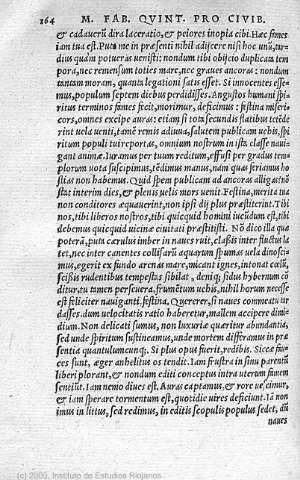 164 M. FAB. QUINT. PRO CIVIB.
& cadaverū dira laceratio, & peiores inopia cibi. Hæc fames
iam tua est. Puta me in præsenti nihil adijcere nisi hoc unū, tar-
dius quàm poteras venisti: nondum tibi obijcio duplicata tem
pora, nec remensum toties mare, nec graves ancoras: nondum
tantam moram, quanta legationi satis esset. Si innocentes esse-
mus, populum septem diebus perdidisses. Angustos humani spi-
ritus terminos fames fecit, morimur, deficimus: festina miseri-
cors, omnes excipe auras: etiam si tota secundis flatibus tetēde
rint vela venti, tamē remis adiuva, salutem publicam vehis, spi-
ritum populi tui reportas, omnium nostrum in ista classe navi-
gant animæ. Iuramus per tuum reditum, effusi per gradus tem
plorum vota suscipimus, tēdimus manus, nam quas feriamus ho
stias non habemus. Quid spem publicam ad ancoras alligas? iā
stat interim dies, & plenis velis mors venit. Festina, merita tua
non conditores æquaverint, non ipsi dij plus præstiterint. Tibi
nos, tibi liberos nostros, tibi quicquid homini iucūdum est, tibi
debemus quicquid vicinæ civitati præstitisti. Nō dico illa quæ
poterā, puta cæruleus imber in naves ruit, classis inter fluctus la
tet, nec inter canentes collisarū aquarum spumas vela dinosci-
mus, egerit ex fundo arenas mare, micant ignes, intonat cælū,
scissis rudentibus tempestas sibilat, deniq; sidus hybernum cō
ditur, tu tamen persevera, frumētum vehis, nihil horum necesse
est feliciter naviganti. festina. Quererer, si naves commeatu tar
dasses. dum velocitatis ratio haberetur, mallem accipere dimi-
dium. Non delicati sumus, non luxuriæ quæritur abundantia,
sed unde spiritum sustineamus, unde mortem differamus in præ
sentia quantulumcunq;. Si plus opus fuerit, redibis. Siccæ fau-
ces sunt, æger anhelitus os tendit. Iam frustra in sinu parentū
liberi plorant, & nondum editi conceptus intra uterum famem
sentiūt. Iam nemo dives est. Auras captamus, & rore vescimur,
& iam sperare tormentum est, quotidie vires deficiunt. Iā non
imus in littus, sed redimus, in editis scopulis populus sedet, dū
naves
(c) 2009. Instituto de Estudios Riojanos